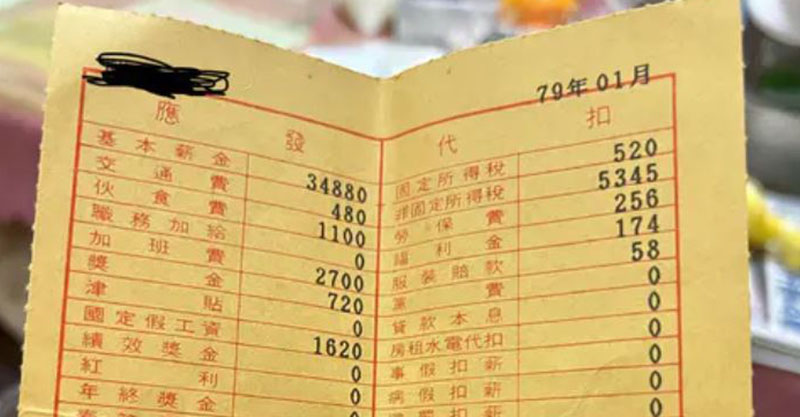 79年01月
應發
基本薪金 34880
交通費 480
伙食費 1100
職務加給 0
加班費 2700
獎金 720
津貼 0
國定假工資 1620
績效獎金 0
紅利 0
年終獎金 0
代扣
固定所得稅 520
非固定所得稅 5345
勞保費 256
福利金 174
服裝賠款 58
黨費 0
貸款本息 0
房租水電代扣 0
事假扣薪 0
病假扣薪 0
扣薪 0